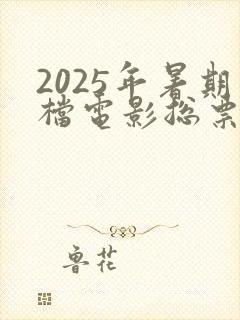 2025年暑期
檔電影總票
鲁花